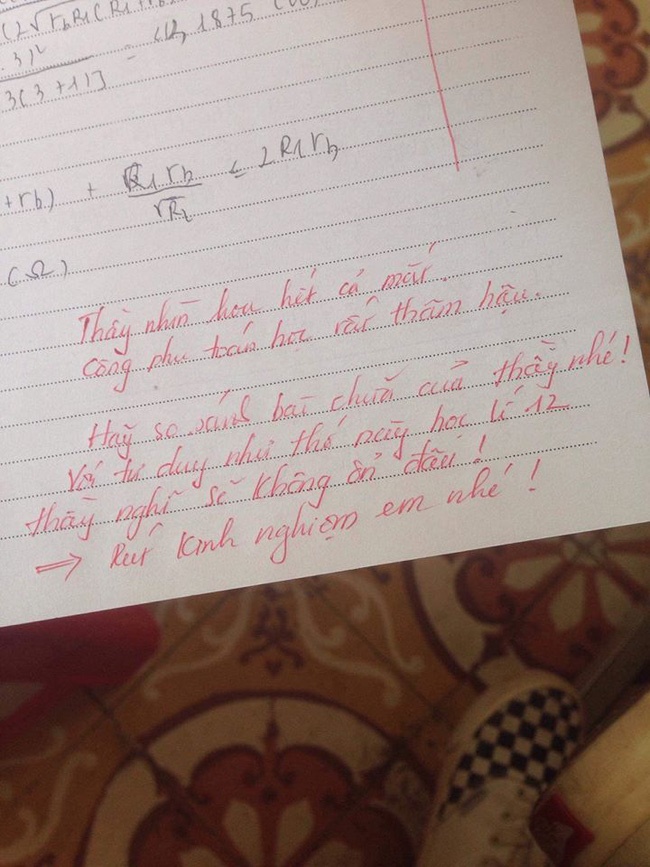 (2√r_b R₁(R₁+r_b
3)²
3[3+1]] = 12,1875 (W)
+r_b) + R₁r_b/√R₁ ≤ 2R₁r_b
(Ω)
Thầy nhìn hoa hết cả mắt.
Công phu toán học rất thâm hậu.
Hãy so sánh bài chữa của thầy nhé!
Với tư duy như thế này học lí 12
thầy nghĩ sẽ không ổn đâu!
⇒ Rút kinh nghiệm em nhé!